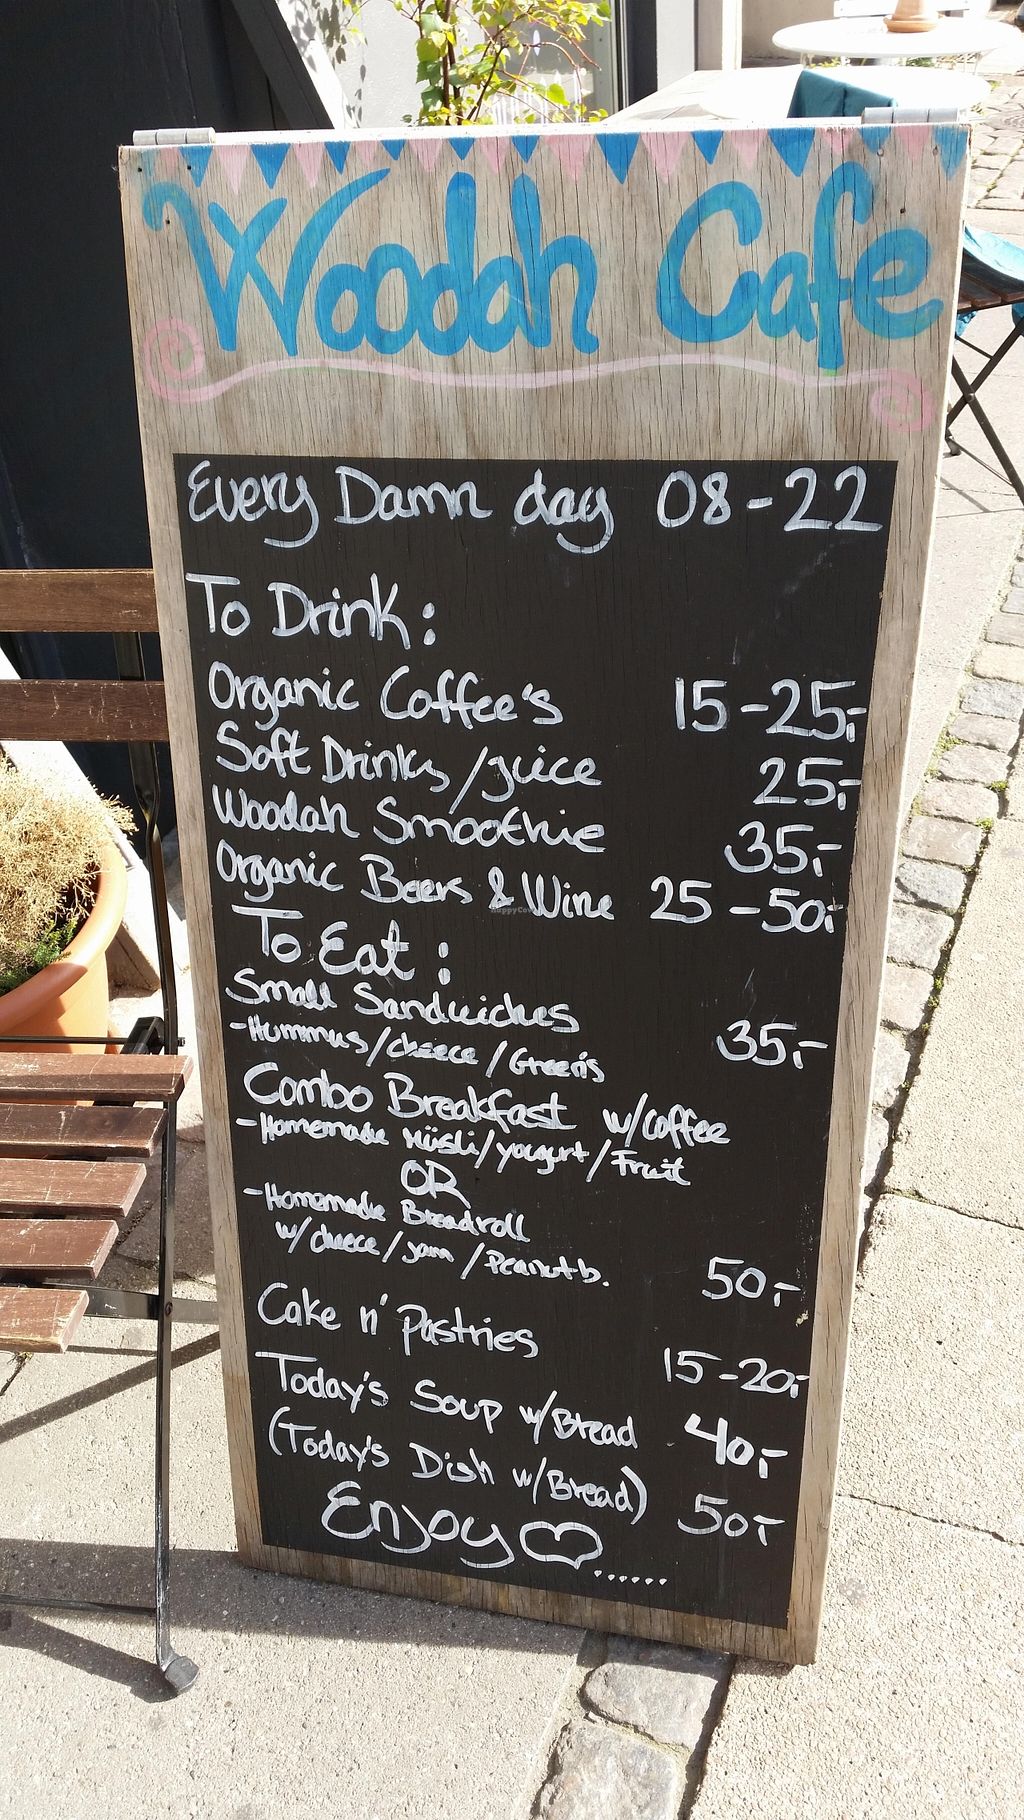 Woodah Cafe
Every Damn day 08-22
To Drink:
Organic Coffee's 15-25,-
Soft Drinks/juice 25,-
Woodah Smoothie 35,-
Organic Beers & Wine 25-50,-
To Eat:
Small Sandwiches
-Hummus/cheece/Green's 35,-
Combo Breakfast w/coffee
-Homemade Müsli/yougurt/Fruit
OR
-Homemade Breadroll
w/cheece/jam/Peanutb. 50,-
Cake n' pastries 15-20,-
Today's Soup w/Bread 40,-
(Today's Dish w/Bread) 50,-
Enjoy ♡......
HappyCow